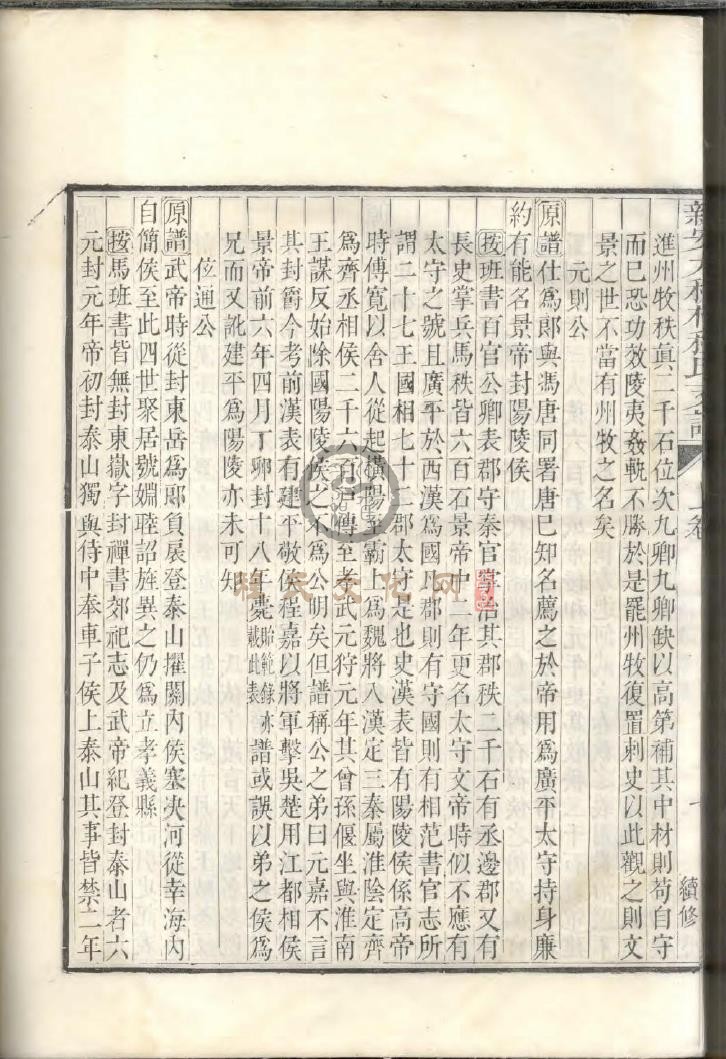 進州牧秩眞二千石位次九卿九卿缺以高第補其中材則苟自守
而已恐功效陵夷姦軌不勝於是罷州牧復置刺史以此觀之則文
景之世不當有州牧之名矣
元則公
原譜仕爲郎與馮唐同署唐已知名薦之於帝用爲廣平太守持身廉
約有能名景帝封陽陵侯
按班書百官公卿表郡守秦官掌治其郡秩二千石有丞邊郡又有
長史掌兵馬秩皆六百石景帝中二年更名太守文帝時似不應有
太守之號且廣平於西漢爲國凡郡則有守國則有相范書官志所
謂二十七王國相七十一郡太守是也史漢表皆有陽陵侯係高帝
時傅寬以舍人從起橫陽至霸上爲魏將入漢定三秦屬淮陰定齊
爲齊丞相侯二千六百戸傳至孝武元狩元年其曾孫偃坐與淮南
王謀反始除國陽陵侯之不爲公明矣但譜稱公之弟曰元嘉不言
其封爵今考前漢表有建平敬侯程嘉以將軍擊吳楚用江都相侯
景帝前六年四月丁卯封十八年薨貽範錄亦載此表譜或誤以弟之侯爲
兄而又訛建平爲陽陵亦未可知
位通公
原譜武帝時從封東岳爲郎負扆登泰山擢關內侯塞決河從幸海內
自簡侯至此四世聚居號婣睦詔旌異之仍爲立孝義縣
按馬班書皆無封東嶽字封禪書郊祀志及武帝紀登封泰山者六
元封元年帝初封泰山獨與侍中奉車子侯上泰山其事皆禁二年
上卷
續修